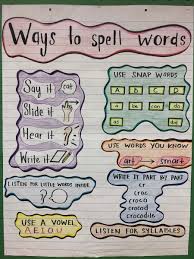 Ways to spell words
Say it cat
Slide it
Hear it
Write it
LISTEN FOR LITTLE WORDS INSIDE
USE A VOWEL
A E I O U
USE SNAP WORDS
A B C D
as be can do
am dad
USE WORDS YOU KNOW
art → smart
WRITE IT PART BY PART
cr
croc
croca
crocod
crocodile
LISTEN FOR SYLLABLES